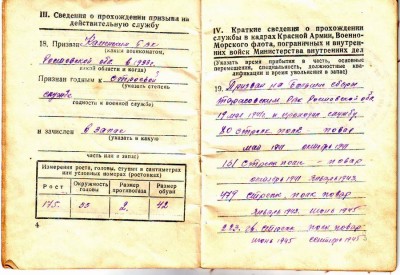 III. Сведения о прохождении призыва на
действительную службу
18. Признан
(каким военкоматом,
Ростовской обл. в
какой области и когда)
Признан годным к строевой
(указать степень
службе
годности к военной службе)
и зачислен в запас
(указать в какую
часть или в запас)
Измерения роста, головы, ступни в сантиметрах
или условных номерах (ростовках)
Рост Окружность головы Размер противогаза Размер обуви
175. 2. 42
4
IV. Краткие сведения о прохождении
службы в кадрах Красной Армии, Военно-
Морского флота, пограничных и внутрен-
них войск Министерства внутренних дел
(Указать время прибытия в часть, основные
перемещения, специальность, должностные ква-
лификации и время увольнения в запас)
19. Призван на
Тарасовским РВК Ростовской обл.
19 мая 1941 и проходил службу
80 стрелк. полк повар
май 1941
161 стрелк полк - повар
479 стрелк. полк повар
июнь 1945
223 стрелк полк повар
июнь 1945 сентября 1945